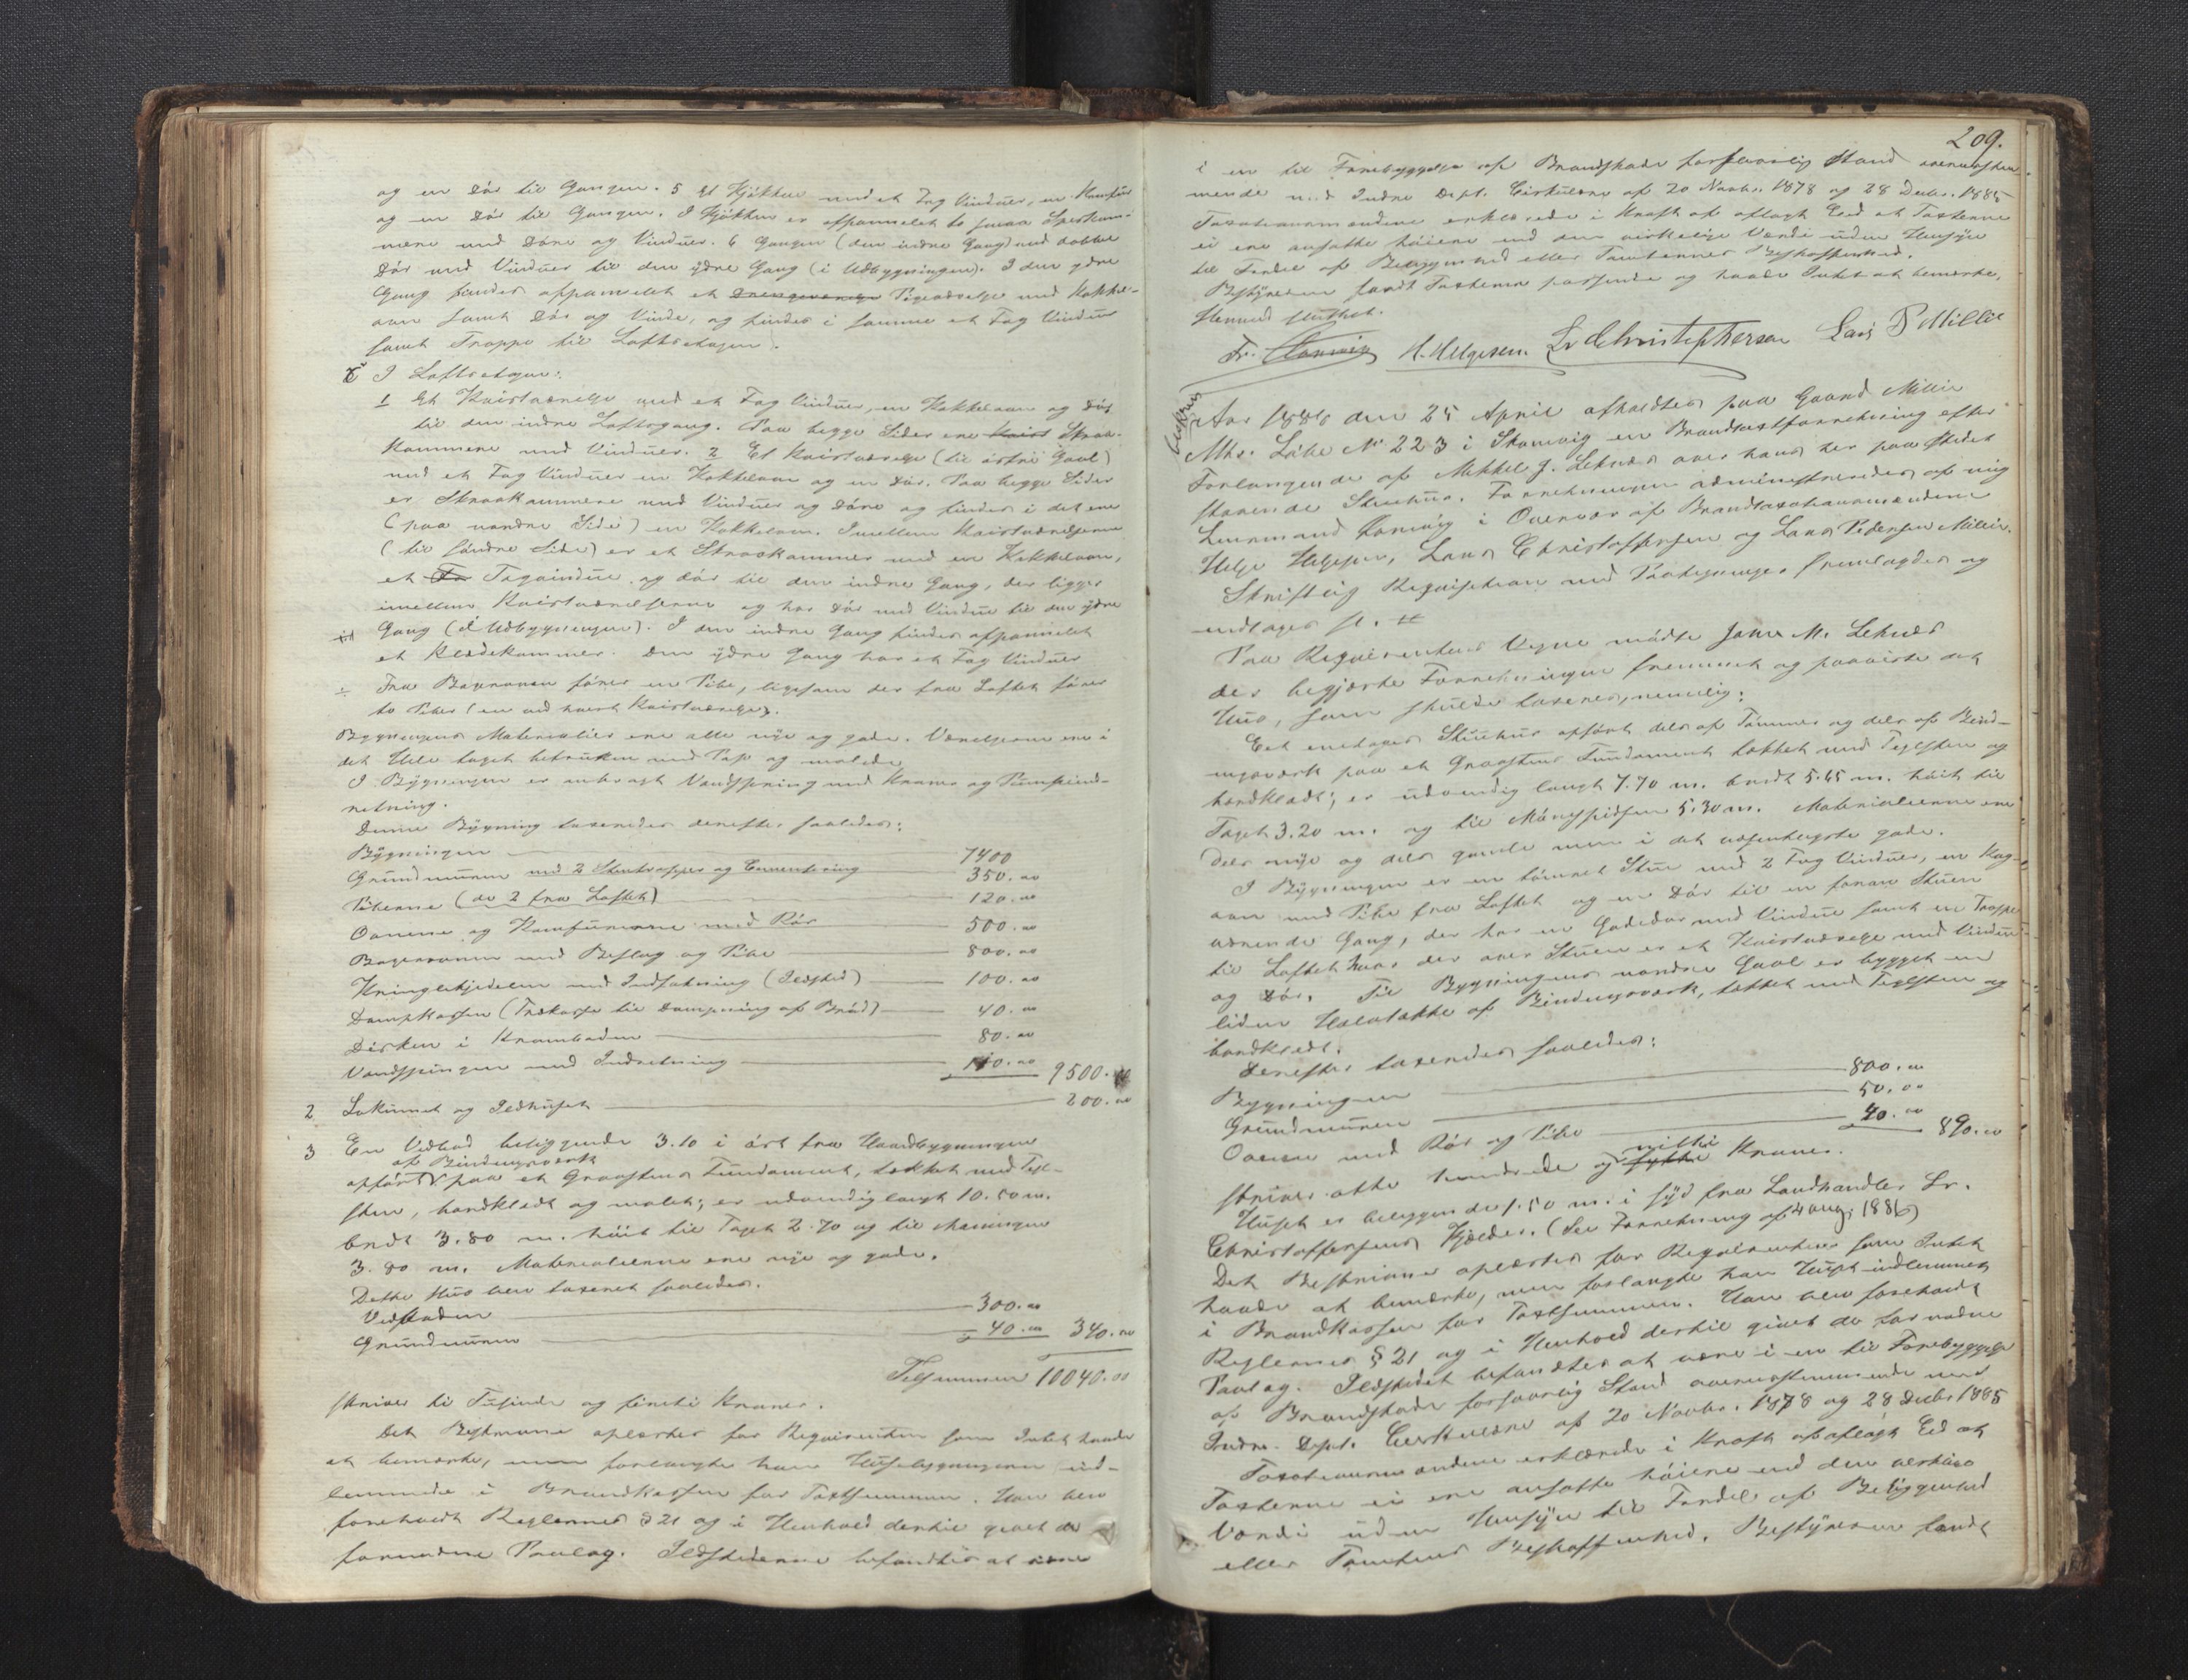 og en Dör til Gangen. 5 Et Kjökken med et Fag Vinduer, en Komfur
og en Dör til Gangen. I Kjökken er afpanelet to smaa Spiskam-
mere med Döre og Vinduer. 6 Gangen (den indre Gang) med dobbel
Dör med Vinduer til den ydre Gang (i Udbygningen). I den ydre
Gang findes afpanelet et Drengeværelse Pigeværelse med Kakkel-
ovn samt Dör og Vindu, og findes i samme et Fag Vinduer
samt Trappe til Loftsetagen.
I Loftsetagen:
1 Et Kvistværelse med et Fag Vinduer, en Kakkelovn og Dör
til den indre Loftsgang. Paa begge Sider ere Kvist Skraa-
kammere med Vinduer. 2 Et Kvistværelse (til östre Gavl)
med et Fag Vinduer en Kakkelovn og en Dör. Paa begge Sider
er Skraakammere med Vinduer og Döre og findes i det ene
(paa nordre Side) en Kakkelovn. Imellem Kvistværelserne
(til söndre Side) er et Skraakammer med en Kakkelovn,
et Fa Tagvindue og Dör til den indre Gang, der ligger
imellem Kvistværelserne og har Dör med Vindue til den ydre
Gang (i Udbygningen). I den indre Gang findes afpanelet
et Klædekammer. Den ydre Gang har et Fag Vinduer
÷ Fra Bagerovnen förer en Pibe, ligesom der fra Loftet förer
to Piber (en ved hvert Kvistværelse).
Bygningens Materialier ere alle nye og gode. Værelserne ere i
det Hele taget betrukken med Pap og malede
I Bygningen er anbragt Vandspring med Kraner og Pumpeind-
retning.
Denne Bygning taxeredes derefter saaledes:
Bygningen 7400
Grundmuren med 2 Stentrapper og Cementering 350.00
Piberne (de 2 fra Loftet) 120.00
Ovnene og Komfurerne med Rör 500.00
Bagerovnen med Beslag og Pibe 800.00
Kringlekjedelen med Indfatning (Ildsted) 100.00
Dampkassen (Trækasse til Dampning af Bröd) 40.00
Disken i Kramboden 80.00
Vandspringen med Indretning 110.00 9500.00
2 Lokummet og Ildhuset 200.00
3 En Vedbod beliggende 3.10 i öst fra Hovedbygningen
af Bindingsværk
opfört paa et Graastens Fundament, tækket med Tegl-
sten, bordklædt og malet; er udvendig langt 10.50 m.
bredt 3.80 m. höit til Taget 2.70 og til Möningen
3.80 m. Materialierne ere nye og gode.
Dette Hus blev taxeret saaledes.
Vedboden 300.00
Grundmuren 40.00 340.00
Tilsammen 10040.00
skriver ti Tusinde og firti Kroner.
Det Beskrevne oplæstes for Reqvirenten som Intet havde
at bemærke, men forlangte han Husebygningerne ind-
lemmede i Brandkassen for Taxtsummen. Han blev
foreholdt Reglernes § 21 og i Henhold dertil givet de
fornødne Paalæg. Ildstederne befandtes at være
209.
i en til Forebyggelse af Brandskade forsvarlig Stand overensstem-
mende med Indre Dept. Cirkulære af 20 Novbr. 1878 og 28 Decbr. 1885
Taxationsmændene erklærede i Kraft af aflagt Eed at Taxterne
ei ere ansatte höiere end den virkelige Værdi uden Hensyn
til Fordel af Beliggenhed eller Tomternes Beskaffenhed.
Bestyreren fandt Taxterne passende og havde Intet at bemærke.
Hermed sluttet.
H. Helgesen. Lr Christophersen Lars P Millie
Aar 1886 den 25 April afholdtes paa Gaard Millie
Mtr. Löbe No 223 i Skonevig en Brandtaxtforretning efter
Forlangende af Mikkel J. Leknes over hans her paa Stedet
staaende Stuehus. Forretningen administreredes af mig
Lensmand i Overvær af Brandtaxationsmændene
Helge Helgesen, Lars Christoffersen og Lars Pedersen Millie.
Skriftlig Reqvisition med Paategninger fremlagdes og
indtages sl. #
Paa Reqvirentens Vegne mödte Jone M. Leknes
der begjærte Forretningen fremmet og paaviste det
Hus, som skulde taxeres, nemlig:
Eet enetages Stuehus opfört dels af Tömmer og dels af Bind-
ingsværk paa et Graastens Fundament tækket med Teglsten og
bordklædt; er udvendig langt 7.70 m. bredt 5.45 m. höit til
Taget 3.20 m. og til Mönespidsen 5.30 m. Materialierne ere
dels nye og dels gamle men i det væsentligste gode.
I Bygningen er en tömret Stue med 2 Fag Vinduer, en Kog-
ovn med Pibe fra Loftet og en Dör til en foran Stuen
værende Gang, der har en Gadedör med Vindue samt en Trappe
til Loftet hvor der over Stuen er et Kvistværelse med Vinduer
og Dör. Til Bygningens nordre Gavl er bygget en
liden Halvtække af Bindingsværk, tækket med Teglsten og
bordklædt.
Derefter taxeredes saaledes:
Bygningen 800.00
Grundmuren 50.00
Ovnen med Rör og Pibe 40.00 890.00
nitti
skriver otte hundrede og fyrti Kroner.
Huset er beliggende 1.50 m. i syd fra Landhandler Lr.
Christoffersens Kjælder. (See Forretning af 4 aug. 1886)
Det Beskrevne oplæstes for Reqvirenten som Intet
havde at bemærke, men forlangte han Huset indlemmet
i Brandkassen for Taxtsummen. Han blev foreholdt
Reglernes § 21 og i Henhold dertil givet de fornødne
Paalæg. Ildstedet befandtes at være i en til Forebyggelse
af Brandskade forsvarlig Stand overensstemmende med
Indre Dept. Cirkulære af 20 Novbr. 1878 og 28 Decbr 1885
Taxationsmændene erklærede i Kraft af aflagt Eed at
Taxterne ei ere ansatte höiere end den virkelige
Værdi uden Hensyn til Fordel af Beliggenhed
eller Tomtens Beskaffenhed. Bestyreren fandt